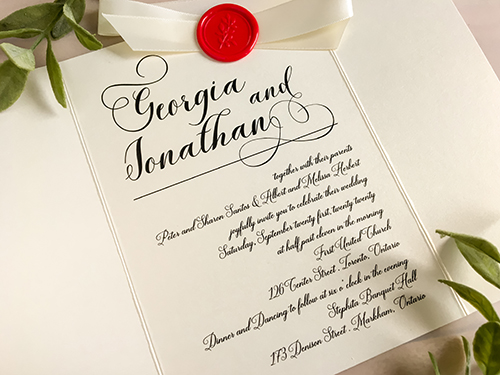 Georgia and
Jonathan
together with their parents
Peter and Sharon Santos & Albert and Melissa Herbert
joyfully invite you to celebrate their wedding
Saturday, September twenty first, twenty twenty
at half past eleven in the morning
First United Church
126 Center Street . Toronto, Ontario
Dinner and Dancing to follow at six o'clock in the evening
Stephita Banquet Hall
173 Denison Street . Markham, Ontario